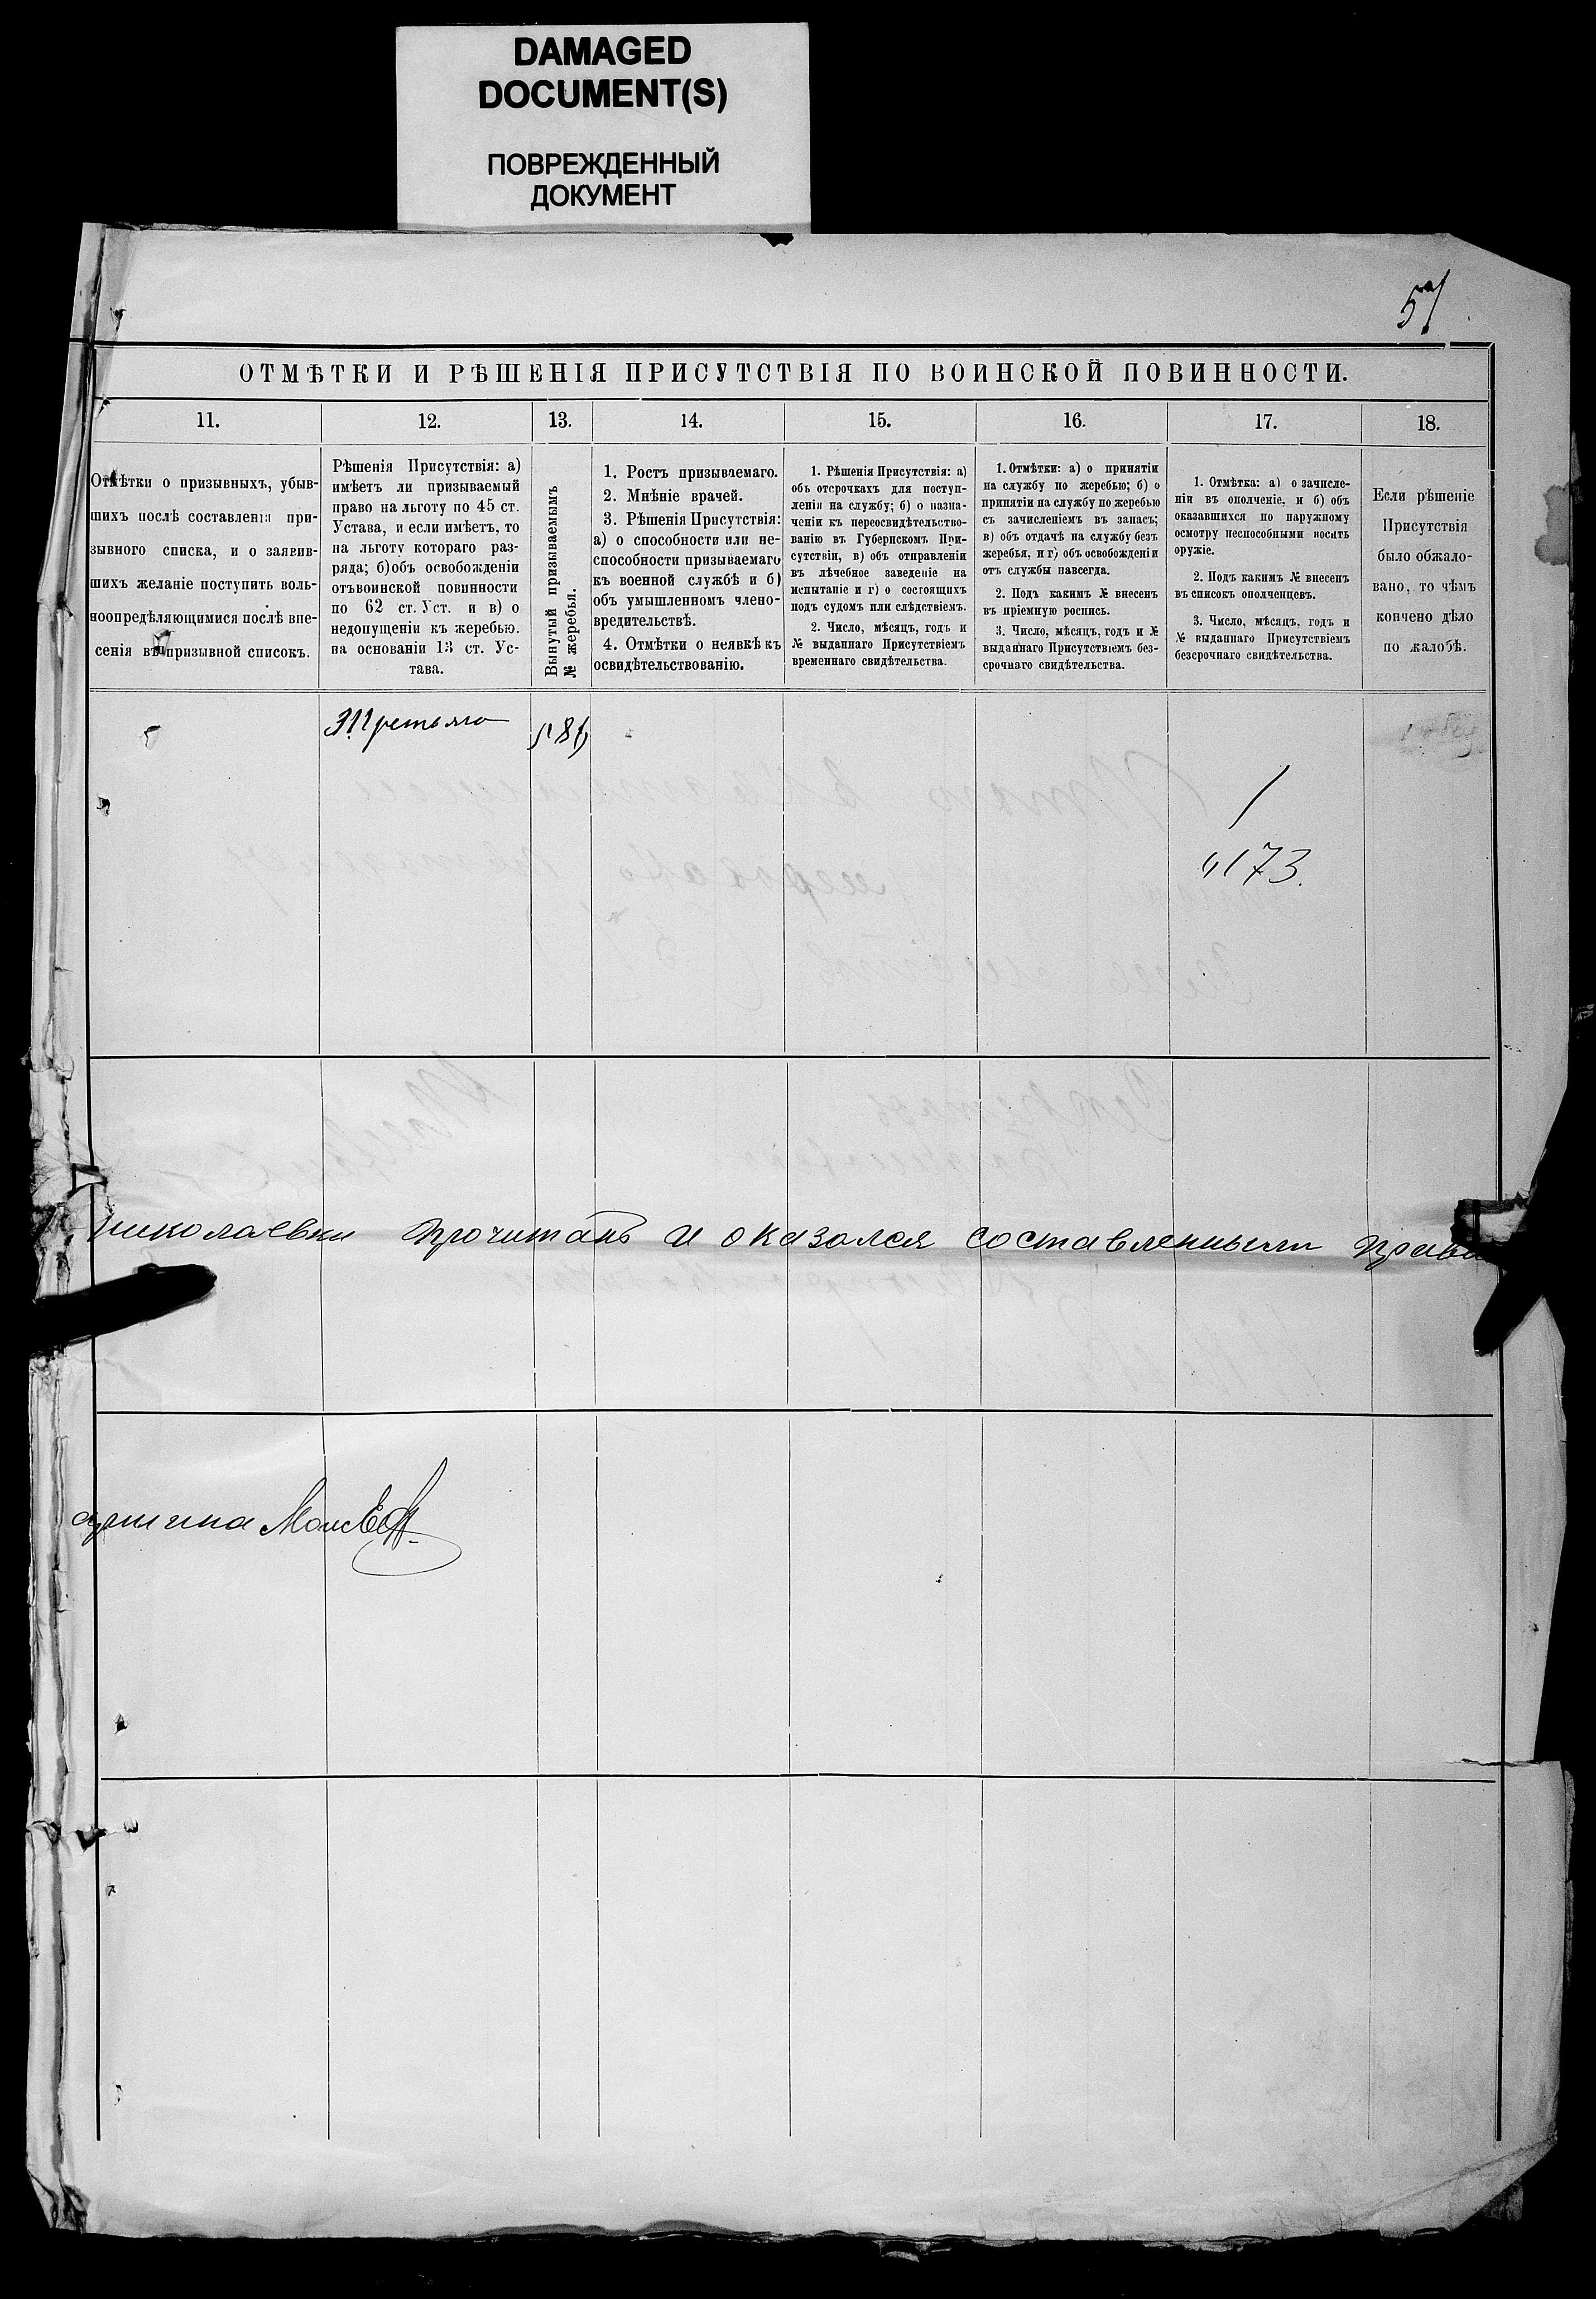 DAMAGED
DOCUMENT(S)
ПОВРЕЖДЕННЫЙ
ДОКУМЕНТ
57
ОТМѢТКИ И РѢШЕНІЯ ПРИСУТСТВІЯ ПО ВОИНСКОЙ ПОВИННОСТИ.
11.
12.
13.
14.
15.
16.
17.
18.
Отмѣтки о призывныхъ, убыв-
шихъ послѣ составленія при-
зывного списка, и о заявив-
шихъ желаніе поступить воль-
ноопредѣляющимися послѣ вне-
сенія въ призывной списокъ.
Рѣшенія Присутствія: а)
имѣетъ ли призываемый
право на льготу по 45 ст.
Устава, и если имѣетъ, то
на льготу котораго раз-
ряда; б) объ освобожденіи
отъ воинской повинности
по 62 ст. Уст. и в) о
недопущеніи къ жеребью.
на основаніи 13 ст. Ус-
тава.
Вынутый призываемымъ
№ жеребья.
1. Ростъ призываемаго.
2. Мнѣніе врачей.
3. Рѣшенія Присутствія:
а) о способности или не-
способности призываемаго
къ военной службѣ и б)
объ умышленномъ члено-
вредительствѣ.
4. Отмѣтки о неявкѣ къ
освидѣтельствованію.
1. Рѣшенія Присутствія: а)
объ отсрочкахъ для поступ-
ленія на службу; б) о назна-
ченіи къ переосвидѣтельство-
ванію въ Губернскомъ При-
сутствіи, в) объ отправленіи
въ лѣчебное заведеніе на
испытаніе и г) о состоящихъ
подъ судомъ или слѣдствіемъ.
2. Число, мѣсяцъ, годъ и
№ выданнаго Присутствіемъ
временнаго свидѣтельства.
1. Отмѣтки: а) о принятіи
на службу по жеребью; б) о
принятіи на службу по жеребью
съ зачисленіемъ въ запасъ;
в) объ отдачѣ на службу безъ
жеребья, и г) объ освобожденіи
отъ службы навсегда.
2. Подъ какимъ № внесенъ
въ пріемную роспись.
3. Число, мѣсяцъ, годъ и №
выданнаго Присутствіемъ без-
срочнаго свидѣтельства.
1. Отмѣтка: а) о зачисле-
ніи въ ополченіе, и б) объ
оказавшихся по наружному
осмотру неспособными носить
оружіе.
2. Подъ какимъ № внесенъ
въ списокъ ополченцевъ.
3. Число, мѣсяцъ, годъ и
№ выданнаго Присутствіемъ
безсрочнаго свидѣтельства.
Если рѣшеніе
Присутствія
было обжало-
вано, то чѣмъ
кончено дѣло
по жалобѣ.
Третьяго
173.
николаевки прочитанъ и оказался составленнымъ прави